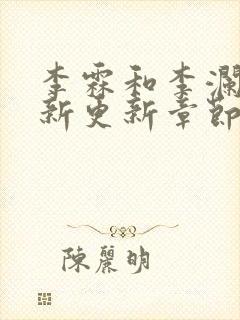 李霖和李瀾
新更新章節
陳麗明